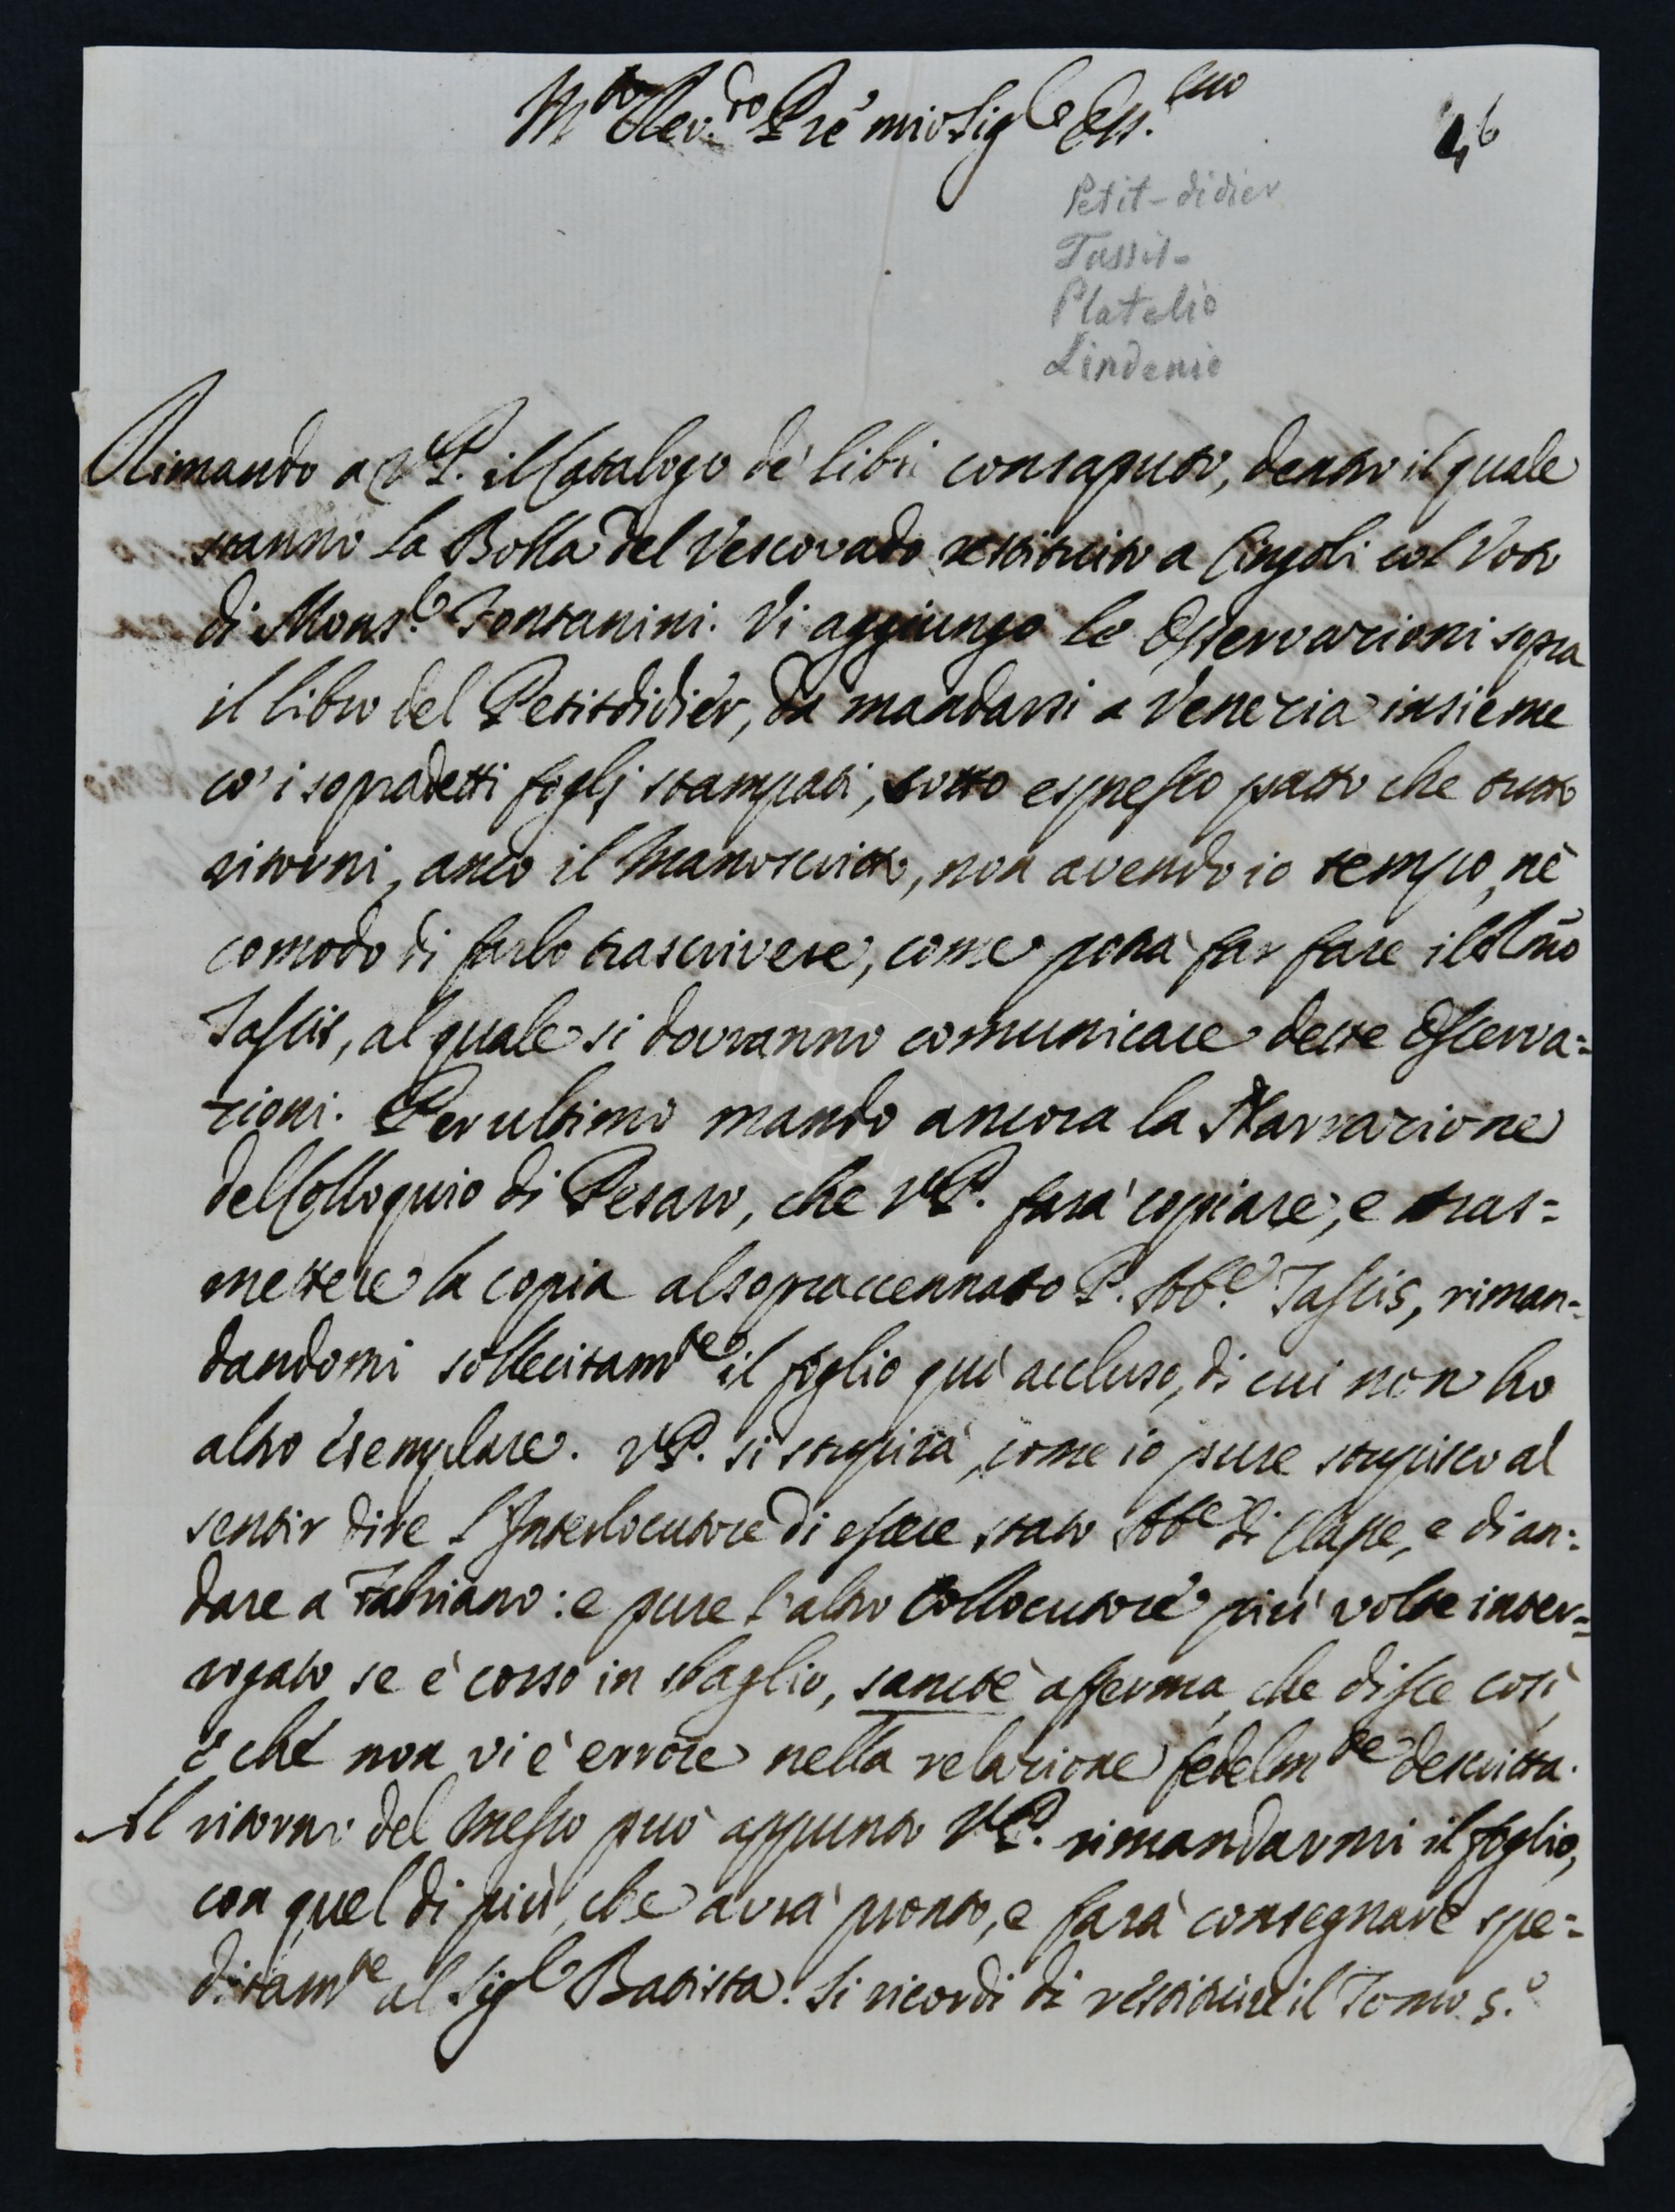 M.to Rev.do P̃re mio Sig.re Oss.mo
46
Petit-didier
Tassis-
Platelio
Lindenio
Rimando a V.P. il Catalogo de' libri consaputo, dentro il quale
stanno la Bolla del Vescovado restituito a Cingoli col Voto
di Mons.re Fontanini. Vi aggiungo le Osservazioni sopra
il libro del Petitdidier, da mandarsi a Venezia insieme
co' i sopradetti foglj stampati, sotto espresso patto che tutto
ritorni, anco il Manoscritto, non avendo io tempo, nè
comodo di farlo trascrivere, come potrà far fare il
Tassis, al quale si dovranno comunicare dette Osserva=
zioni. Per ultimo mando ancora la Narrazione
del Colloquio di Pesaro, che V.P. farà copiare, e tras=
mettere la copia al sopraccennato P. Abb.e Tassis, riman=
dandomi sollecitam.te il foglio quì accluso, di cui non ho
altro esemplare. V.P. si stupirà, come io pure stupisco al
sentir dire l'Interlocutore di essere stato Abb.e di Classe, e di an=
dare a Fabriano: e pure l'altro Collocutore più volte inter=
rogato se è corso in sbaglio, sanctè afferma, che disse così,
e che non vi è errore nella relazione fedelm.te descritta.
Al ritorno del Messo può appunto V.P. rimandarmi il foglio,
con quel di più, che avrà pronto, e farà consegnare spe=
ditam.te al Sig.re Batista. Si ricordi di restituire il Tomo 5.o